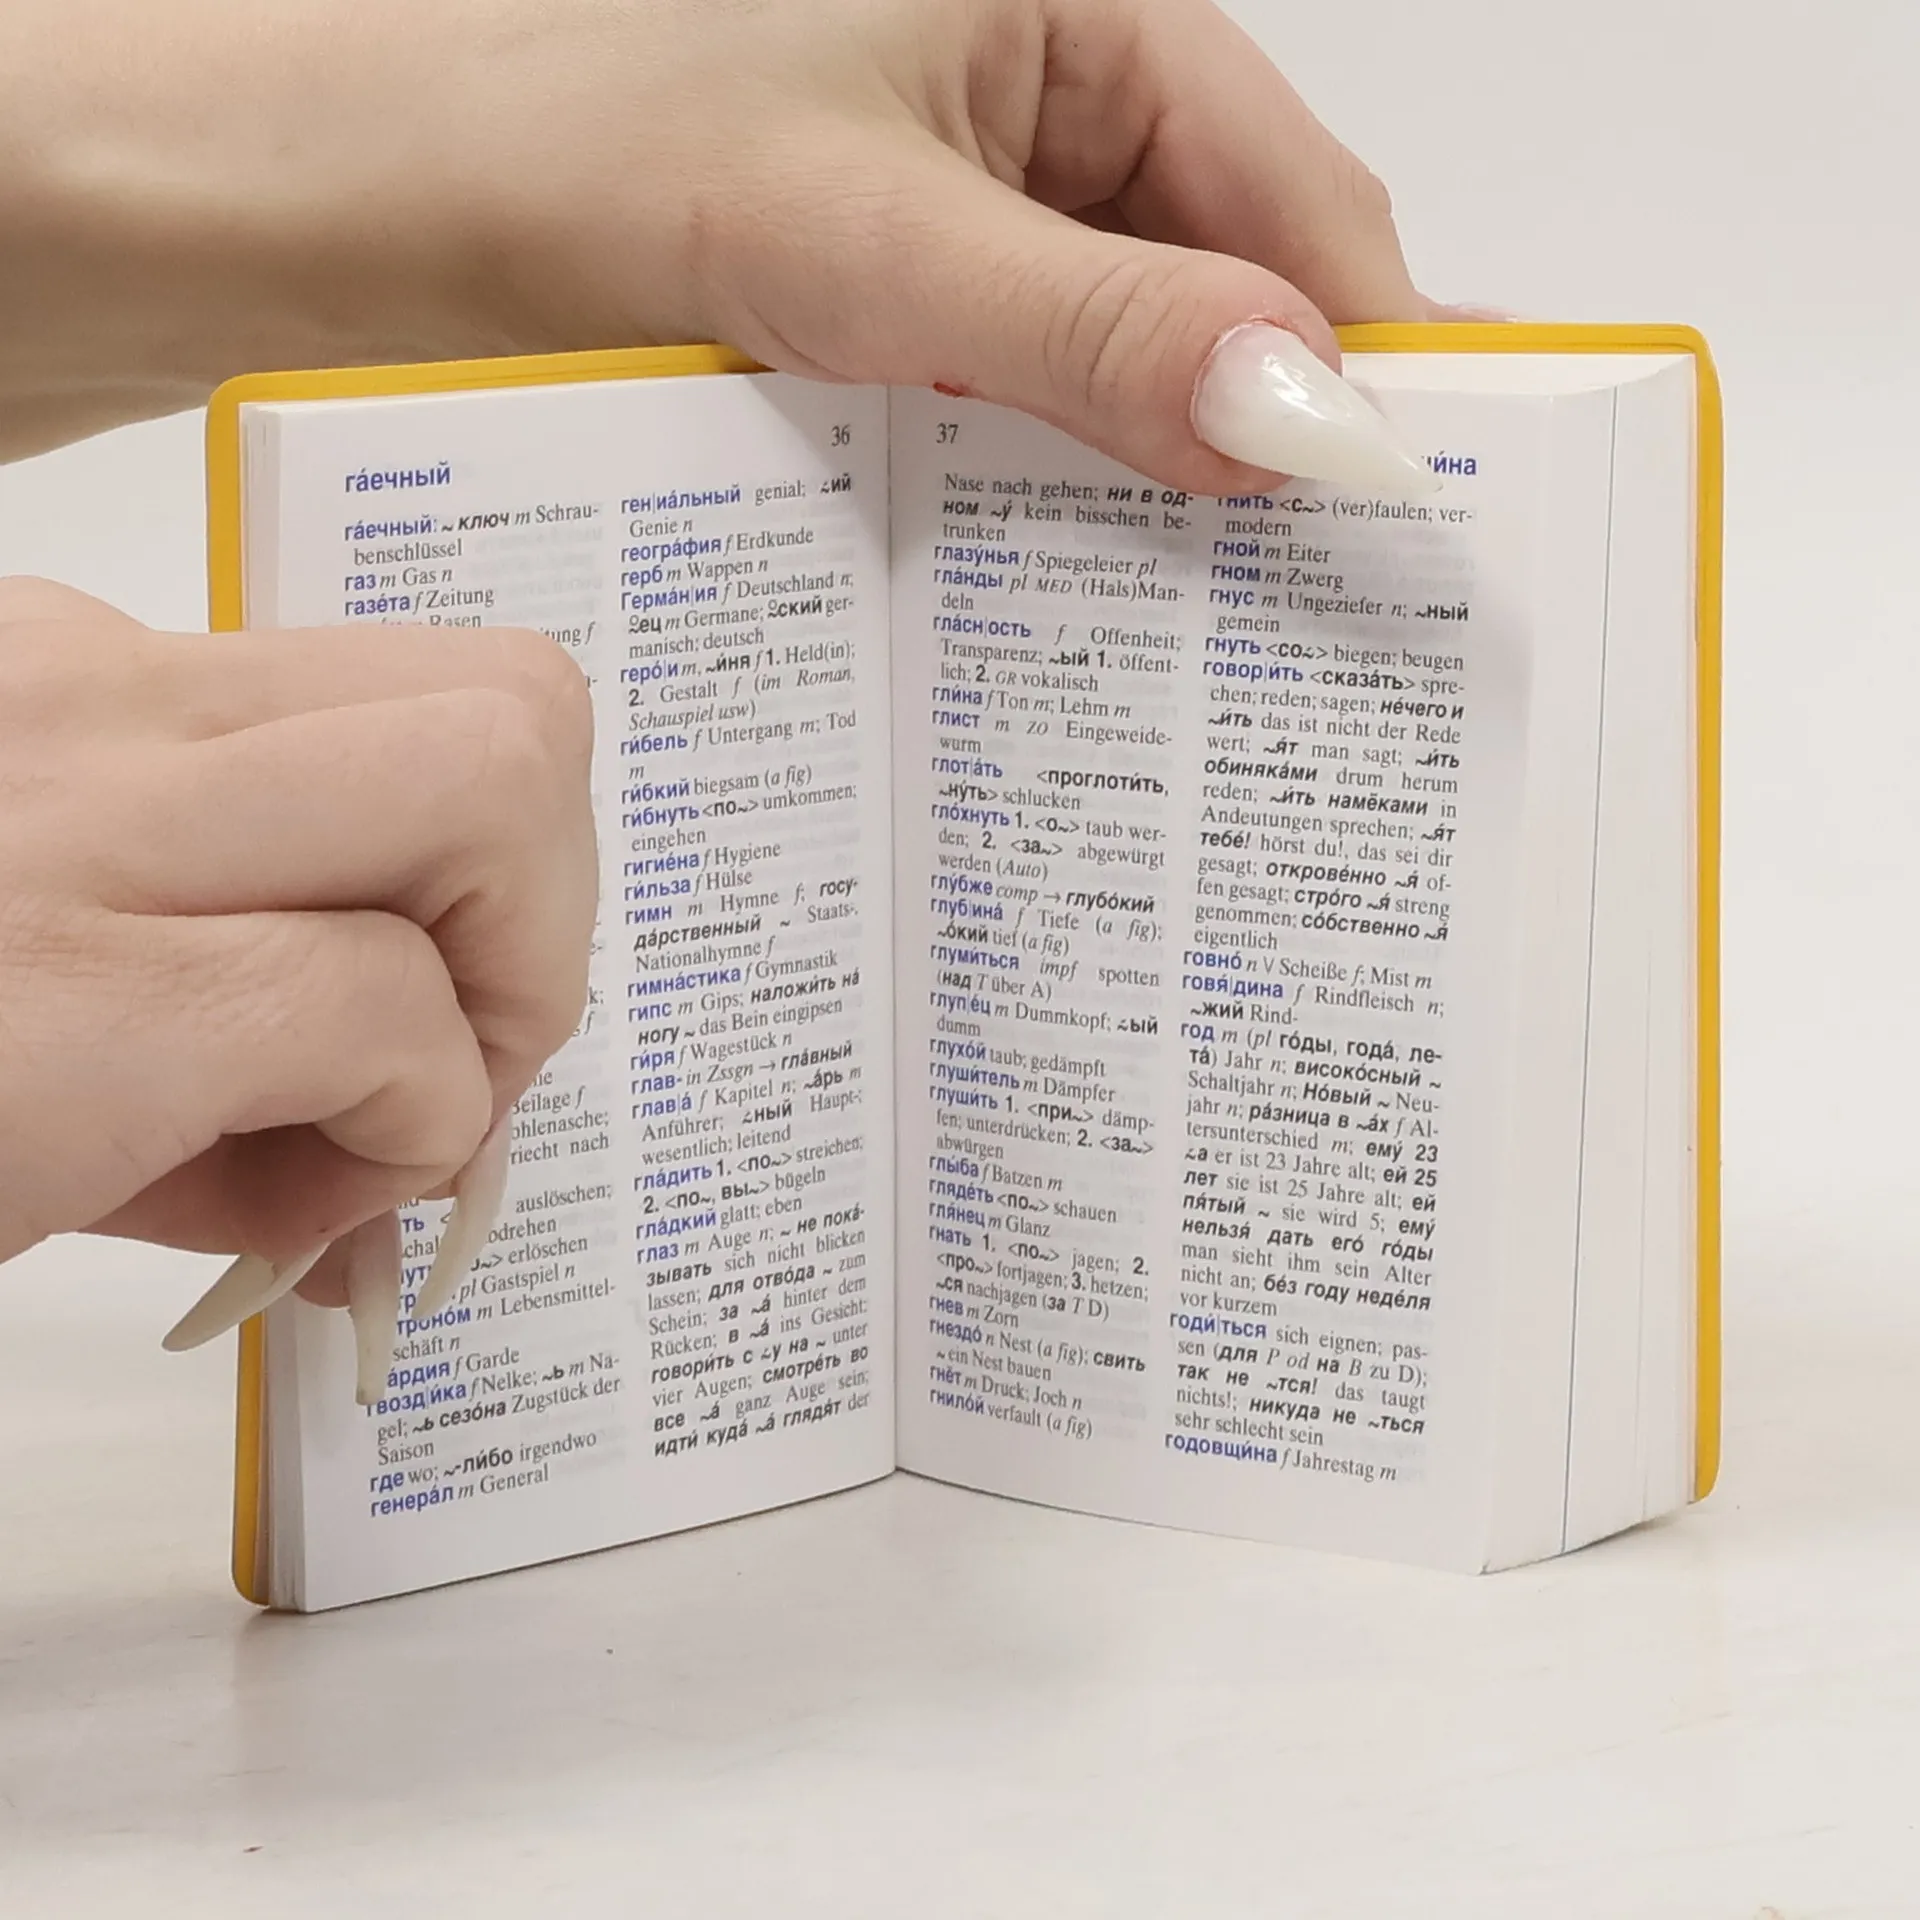 36
га́ечный
га́ечный: ~ ключ m Schrau-
benschlüssel
газ m Gas n
газе́та f Zeitung
m Rasen
f
Beilage f
riecht nach
auslöschen;
erlöschen
pl Gastspiel n
m Lebensmittel-
schäft n
f Garde
гвозд|и́ка f Nelke; ~ь m Na-
gel; ~ь сезо́на Zugstück der
Saison
где wo; ~-ли́бо irgendwo
генера́л m General
ген|иа́льный genial; ~́ий
Genie n
геогра́фия f Erdkunde
герб m Wappen n
Герма́н|ия f Deutschland n;
~ец m Germane; ~ский ger-
manisch; deutsch
геро́|и m, ~и́ня f 1. Held(in);
2. Gestalt f (im Roman,
Schauspiel usw)
ги́бель f Untergang m; Tod
m
ги́бкий biegsam (a fig)
ги́бнуть <по~> umkommen;
eingehen
гигие́на f Hygiene
ги́льза f Hülse
гимн m Hymne f; госу-
да́рственный ~ Staats-,
Nationalhymne f
гимна́стика f Gymnastik
гипс m Gips; наложи́ть на́
ногу ~ das Bein eingipsen
ги́ря f Wagestück n
глав- in Zssgn → гла́вный
глав|а́ f Kapitel n; ~а́рь m
Anführer; ~́ный Haupt-;
wesentlich; leitend
гла́дить 1. <по~> streichen;
2. <по~, вы~> bügeln
гла́дкий glatt; eben
глаз m Auge n; ~ не пока́-
зывать sich nicht blicken
lassen; для отво́да ~ zum
Schein; за ~а́ hinter dem
Rücken; в ~а́ ins Gesicht;
говори́ть с ~́у на ~ unter
vier Augen; смотре́ть во
все ~а́ ganz Auge sein;
идти́ куда́ ~а́ глядя́т der
37
Nase nach gehen; ни в од-
ном ~у́ kein bisschen be-
trunken
глазу́нья f Spiegeleier pl
гла́нды pl MED (Hals)Man-
deln
гла́сн|ость f Offenheit;
Transparenz; ~ый 1. öffent-
lich; 2. GR vokalisch
гли́на f Ton m; Lehm m
глист m ZO Eingeweide-
wurm
глот|а́ть <проглоти́ть,
~ну́ть> schlucken
гло́хнуть 1. <о~> taub wer-
den; 2. <за~> abgewürgt
werden (Auto)
глу́бже comp → глубо́кий
глуб|ина́ f Tiefe (a fig);
~о́кий tief (a fig)
глуми́ться impf spotten
(над T über A)
глуп|е́ц m Dummkopf; ~́ый
dumm
глухо́й taub; gedämpft
глуши́тель m Dämpfer
глуши́ть 1. <при~> dämp-
fen; unterdrücken; 2. <за~>
abwürgen
глы́ба f Batzen m
гляде́ть <по~> schauen
гля́нец m Glanz
гнать 1. <по~> jagen; 2.
<про~> fortjagen; 3. hetzen;
~ся nachjagen (за T D)
гнев m Zorn
гнездо́ n Nest (a fig); свить
~ ein Nest bauen
гнёт m Druck; Joch n
гнило́й verfault (a fig)
гнить <с~> (ver)faulen; ver-
modern
гной m Eiter
гном m Zwerg
гнус m Ungeziefer n; ~ный
gemein
гнуть <со~> biegen; beugen
говор|и́ть <сказа́ть> spre-
chen; reden; sagen; не́чего и
~и́ть das ist nicht der Rede
wert; ~я́т man sagt; ~и́ть
обиняка́ми drum herum
reden; ~и́ть намёками in
Andeutungen sprechen; ~я́т
тебе́! hörst du!, das sei dir
gesagt; открове́нно ~я́ of-
fen gesagt; стро́го ~я́ streng
genommen; со́бственно ~я́
eigentlich
говно́ n V Scheiße f; Mist m
говя́|дина f Rindfleisch n;
~жий Rind-
год m (pl го́ды, года́, ле-
та́) Jahr n; високо́сный ~
Schaltjahr n; Но́вый ~ Neu-
jahr n; ра́зница в ~ах f Al-
tersunterschied m; ему́ 23
~́а er ist 23 Jahre alt; ей 25
лет sie ist 25 Jahre alt; ей
пя́тый ~ sie wird 5; ему́
нельзя́ дать его́ го́ды
man sieht ihm sein Alter
nicht an; бе́з году неде́ля
vor kurzem
годи́|ться sich eignen; pas-
sen (для P od на B zu D);
так не ~тся! das taugt
nichts!; никуда не ~ться
sehr schlecht sein
годовщи́на f Jahrestag m